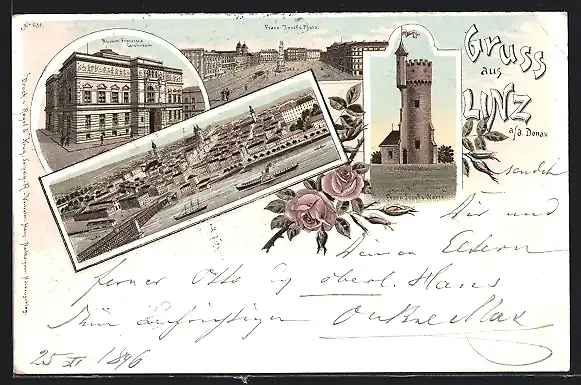 Nº 631.
Museum Francisco Carolinum
Franz Josefs Platz.
Gruss
aus
LINZ
a/d. Donau
sendet
Dir und
Deinen Eltern
ferner Otto u. oberl. Hans
Dein aufrichtiger Onkel Max
25 XI 1896